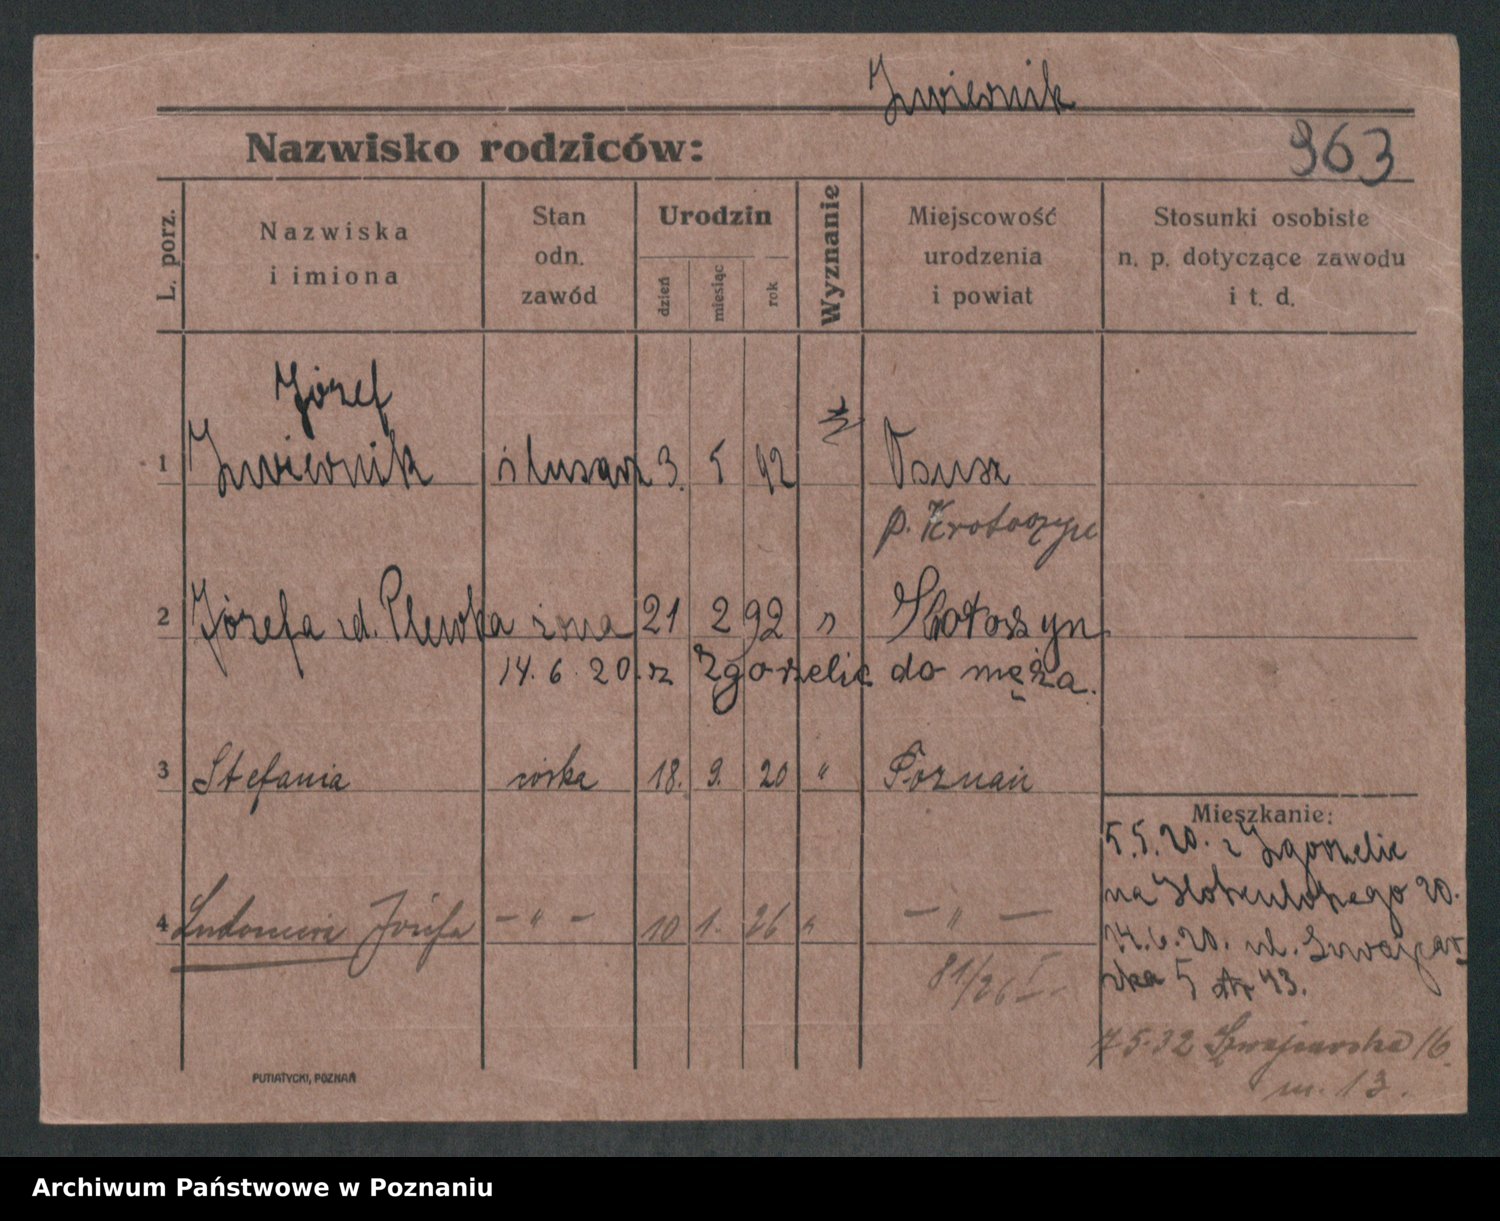 Zwiernik
Nazwisko rodziców:
963
L. porz.
Nazwiska
i imiona
Stan
odn.
zawód
Urodzin
dzień
miesiąc
rok
Wyznanie
Miejscowość
urodzenia
i powiat
Stosunki osobiste
n. p. dotyczące zawodu
i t. d.
Józef
1 Zwiernik ślusarz 3. 5 92
p. Krotoszyn
2 Józefa zd. Plewka żona 21 2 92
14. 6. 20. z Zgorzelic do męża.
3 Stefania córka 18. 9. 20 " Poznań
4 Ludomira Józefa - " - 10 1. 26 " - " -
81/26 I
Mieszkanie:
5.5.20. z Zgorzelic
na 20.
14.6.20. ul. Szwajcar-
ska 5 13.
7 5.32 Szwajcarska 16
m. 13.
PUTIATYCKI, POZNAŃ
Archiwum Państwowe w Poznaniu